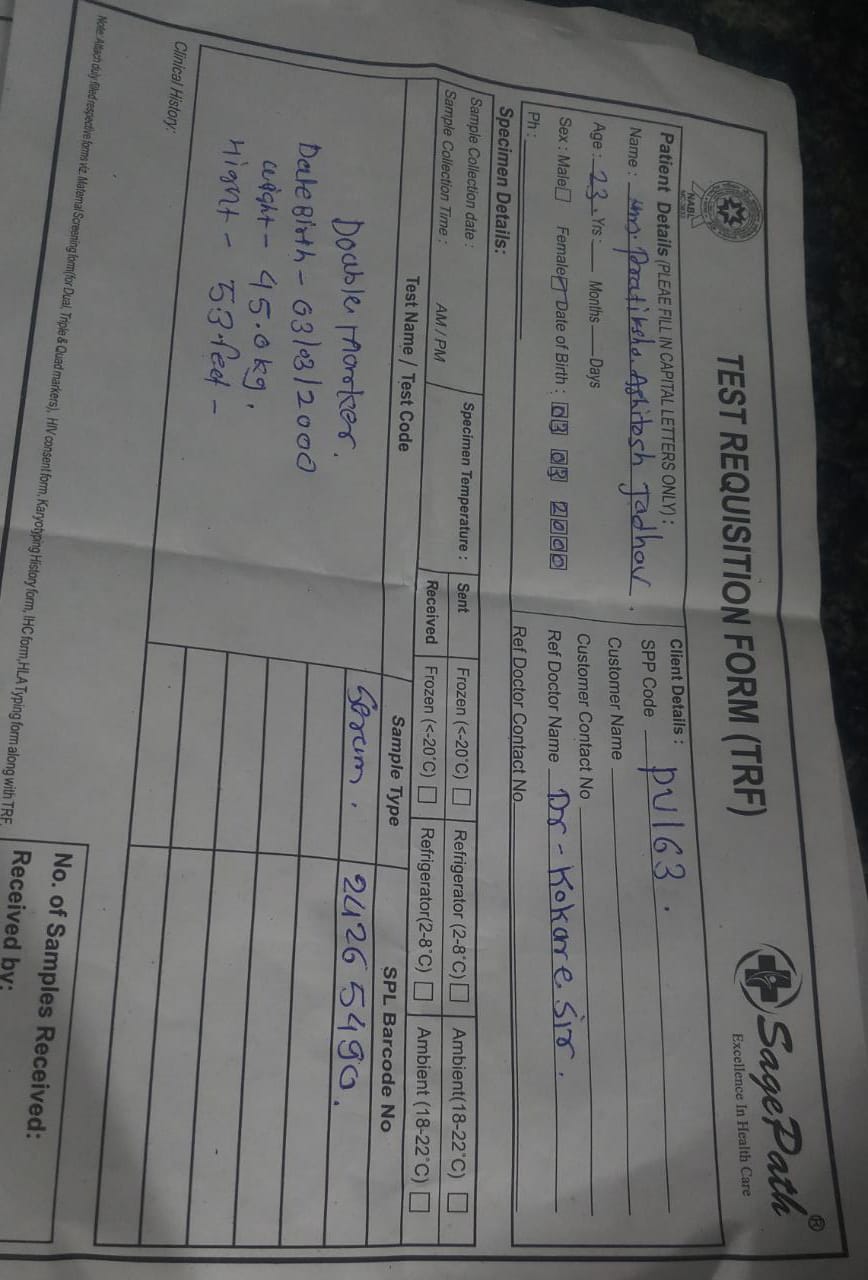 NABL
TEST REQUISITION FORM (TRF)
SagePath®
Excellence In Health Care
Patient Details (PLEAE FILL IN CAPITAL LETTERS ONLY) :
Name : Mrs. Pratiksha. Ashitosh Jadhav.
Age : 23. Yrs : Months Days
Sex : Male Female Date of Birth : 03 03 2000
Ph :
Client Details :
SPP Code PU163.
Customer Name
Customer Contact No
Ref Doctor Name Dr - Kokare. Sir.
Ref Doctor Contact No
Specimen Details:
Sample Collection date : Specimen Temperature : Sent Frozen (<-20°C) Refrigerator (2-8°C) Ambient(18-22°C)
Sample Collection Time : AM / PM Received Frozen (<-20°C) Refrigerator(2-8°C) Ambient (18-22°C)
Test Name / Test Code Sample Type SPL Barcode No
Doable Marker. Serum. 24265490.
Date Birth - 03/03/2000
weight - 45.0kg.
Hight - 53.feet -
Clinical History:
Note: Attach duly filled respective forms viz. Maternal Screening form(for Dual, Triple & Quad markers), HIV consent form, Karyotyping History form, IHC form, HLA Typing form along with TRF.
No. of Samples Received:
Received by: